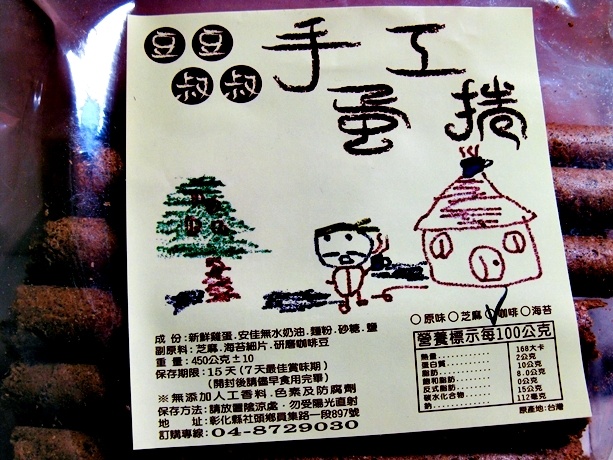 豆豆
叔叔
手工
蛋捲
○原味○芝麻○咖啡○海苔
成 份:新鮮雞蛋.安佳無水奶油.麵粉.砂糖.鹽
副原料:芝麻.海苔細片.研磨咖啡豆
重 量:450公克±10
保存期限:15天(7天最佳賞味期)
(開封後請儘早食用完畢)
※無添加人工香料.色素及防腐劑
保存方法:請放置陰涼處.勿受陽光直射
地 址:彰化縣社頭鄉員集路一段897號
訂購專線:04-8729030
營養標示每100公克
熱量 168大卡
蛋白質 2公克
脂肪 10公克
飽和脂肪 8.0公克
反式脂肪 0公克
碳水化合物 15公克
鈉 112毫克
原產地:台灣